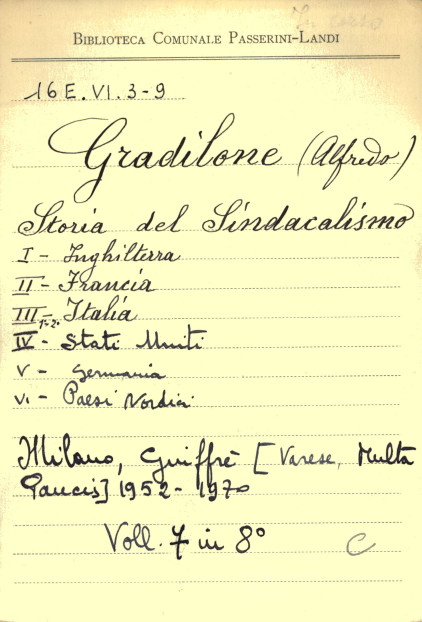 In corso
BIBLIOTECA COMUNALE PASSERINI-LANDI
16 E. VI. 3-9
Gradilone (Alfredo)
Storia del Sindacalismo
I - Inghilterra
II - Francia
III 1-2° - Italia
IV - Stati Uniti
V - Germania
VI - Paesi Nordici
Milano, Giuffrè [Varese, Multa
Paucis] 1952 - 1970
Voll. 7 in 8°
C